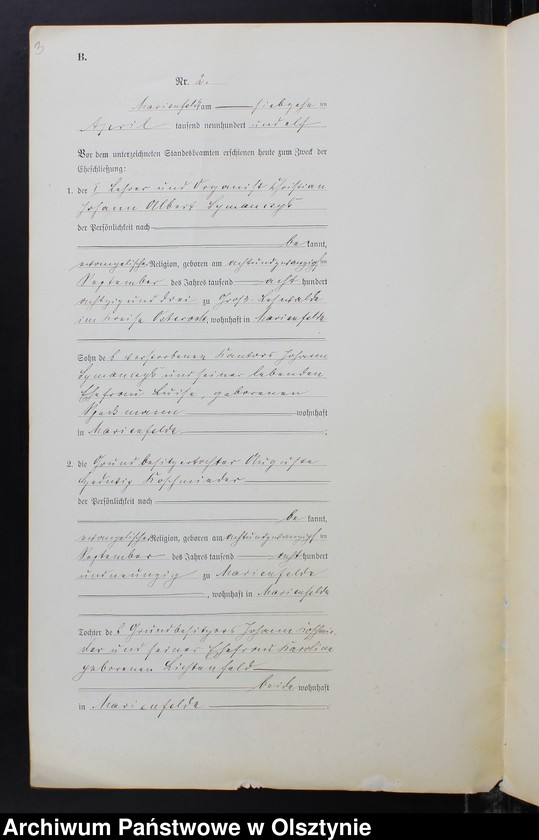 3
B.
Nr. 2.
Marienfelde am siebzehn ten
April tausend neunhundert und elf
Vor dem unterzeichneten Standesbeamten erschienen heute zum Zweck der
Eheschließung:
1. der Lehrer und Organist Christian
Johann Albert Symanczyk
der Persönlichkeit nach
be kannt,
evangelischer Religion, geboren am achtundzwanzigsten
September des Jahres tausend acht hundert
achtzig und drei zu Groß Lehwalde
im Kreise Osterode, wohnhaft in Marienfelde
Sohn des verstorbenen Kantors Johann
Symanczyk und seiner lebenden
Ehefrau Luise, geborenen
wohnhaft
in Marienfelde.
2. die Grundbesitzertochter Auguste
Hedwig Koschmieder
der Persönlichkeit nach
be kannt,
evangelischer Religion, geboren am achtundzwanzigsten
September des Jahres tausend acht hundert
und neunzig zu Marienfelde
, wohnhaft in Marienfelde
Tochter des Grundbesitzers Johann Koschmie-
der und seiner Ehefrau Karoline
geborenen Lichtenfeld
beide wohnhaft
in Marienfelde.
Archiwum Państwowe w Olsztynie